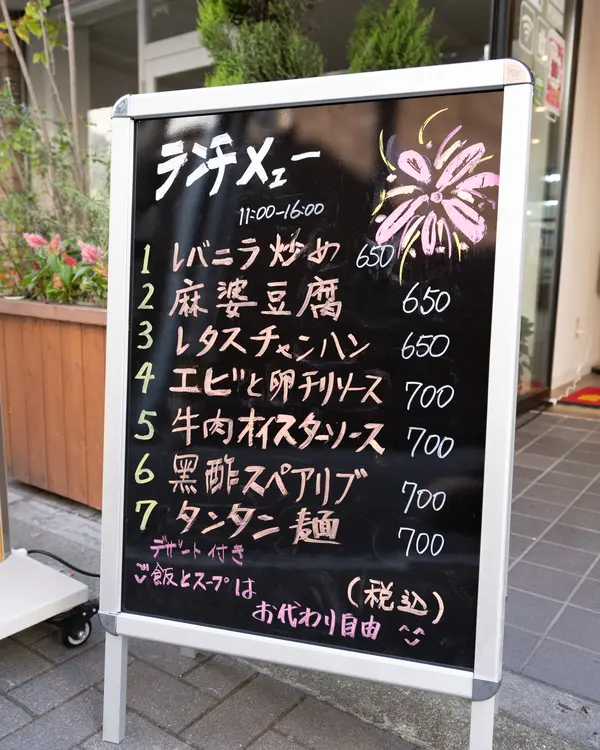 ランチメェー
11:00-16:00
1 レバニラ炒め 650
2 麻婆豆腐 650
3 レタスチャンハン 650
4 エビと卵チリソース 700
5 牛肉オイスターソース 700
6 黒酢スペアリブ 700
7 タンタン麺 700
デザート付き
飯とスープは (税込)
お代わり自由